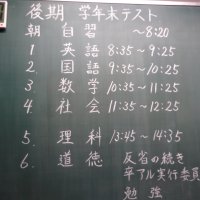 後期 学年末テスト
朝 自習 ～8:20
1 英語 8:35～9:25
2. 国語 9:35～10:25
3. 数学 10:35～11:25
4. 社会 11:35～12:25
5. 理科 13:45～14:35
6. 道徳 反省の続き
卒アル実行委員
勉強